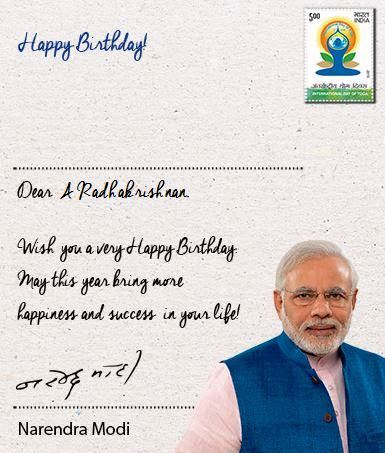 Happy Birthday!
5.00
भारत
INDIA
अंतर्राष्ट्रीय योग दिवस
INTERNATIONAL DAY OF YOGA
Dear A Radhakrishnan,
Wish you a very Happy Birthday.
May this year bring more
happiness and success in your life!
नरेन्द्र मोदी
Narendra Modi